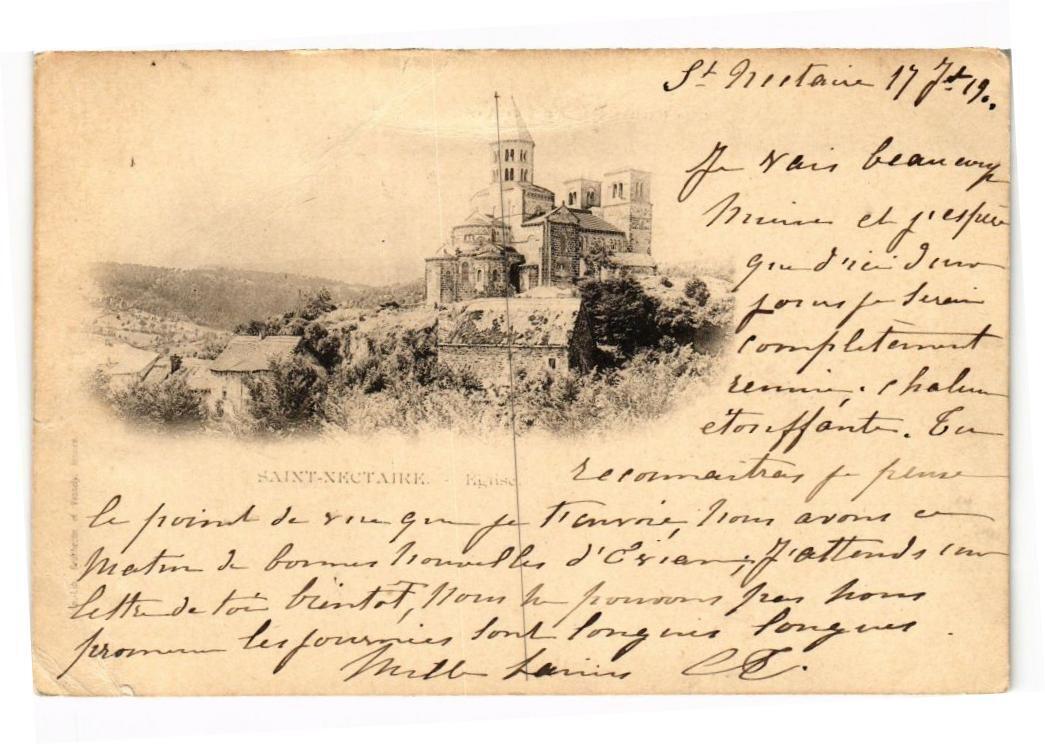 St Nectaire 17 Jt 1900
Je vais beaucoup
mieux et j'espère
que d'ici deux
jours je serai
complètement
remise; chaleur
étouffante. Tu
SAINT-NECTAIRE. - Eglise.
reconnaitras je pense
le point de vue que je t'envoie, nous avons ce
matin de bonnes nouvelles d'Evian; J'attends une
lettre de toi bientôt, nous ne pouvons pas nous
promener les journées sont longues longues.
Mille